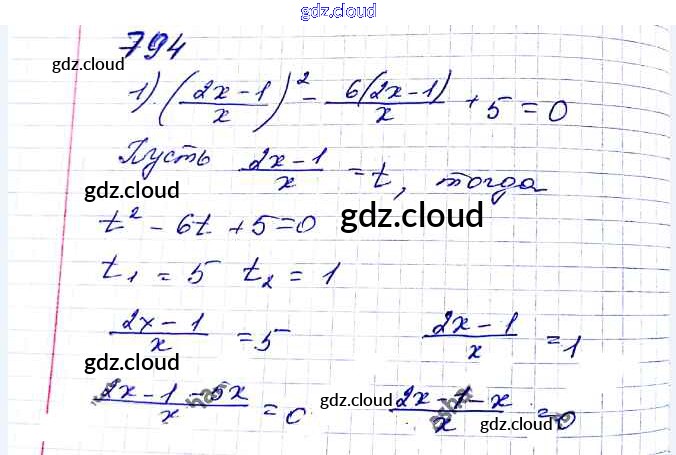 gdz.cloud
794
gdz.cloud
1) ((2x - 1)/x)² - 6(2x - 1)/x + 5 = 0
Пусть (2x - 1)/x = t, тогда
gdz.cloud
gdz.cloud
t² - 6t + 5 = 0
t₁ = 5 t₂ = 1
(2x - 1)/x = 5 (2x - 1)/x = 1
gdz.cloud
(2x - 1 - 5x)/x = 0 (2x - 1 - x)/x = 0
gdz.cloud
gdz.cloud